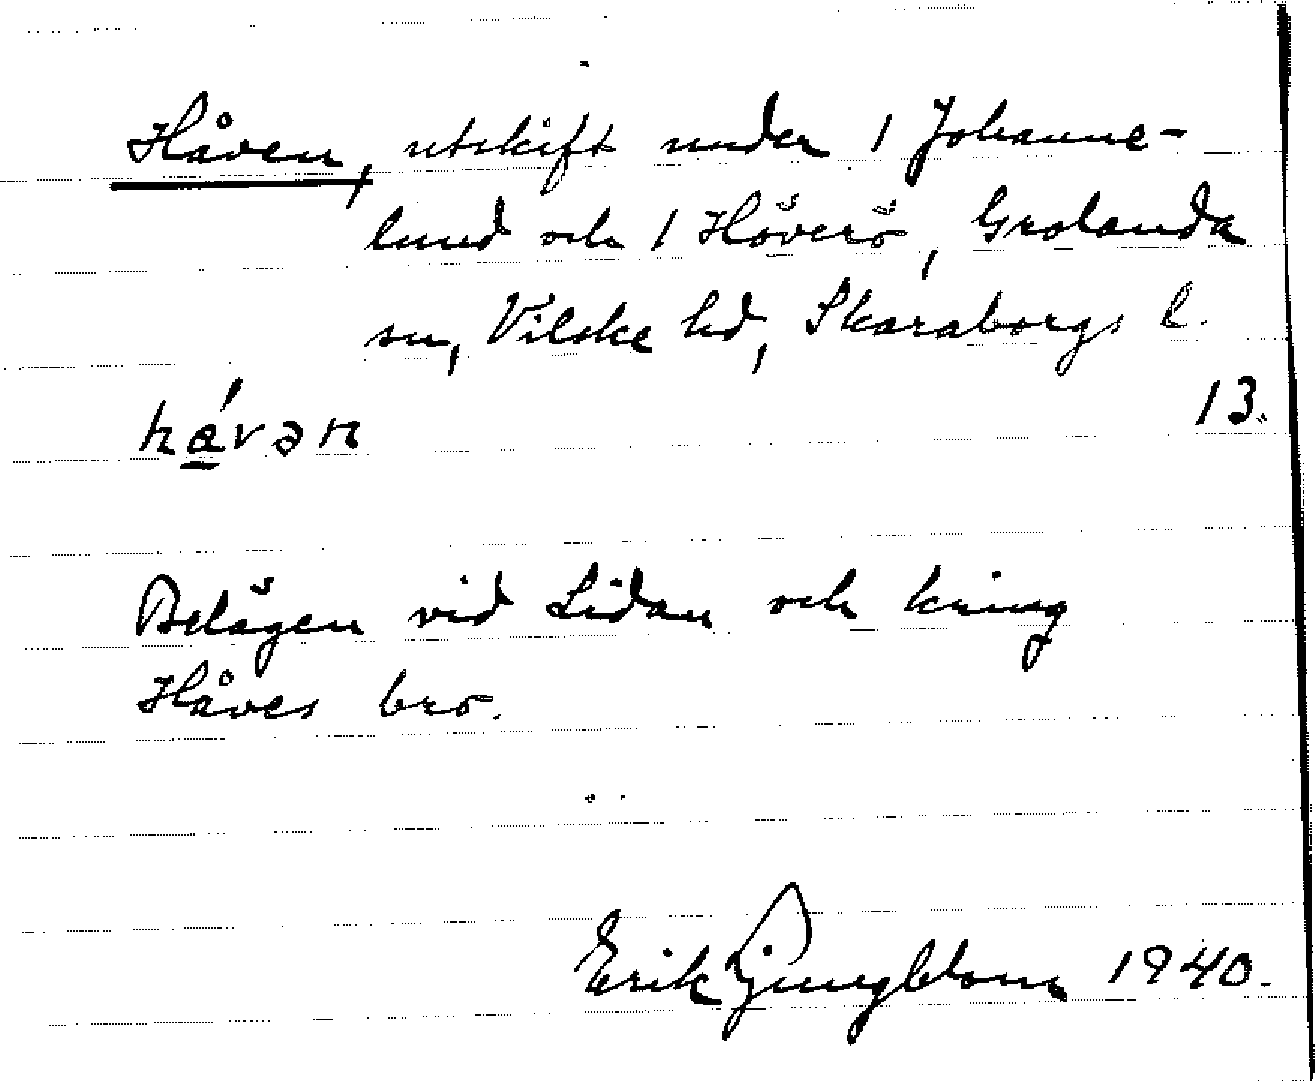 Håven, utskift under 1 Johanne-
lund och 1 Höverö, Grolanda
sn, Vilske hd, Skaraborgs l.
há̱vən 13.
Belägen vid Lidan och kring
Håves bro.
Erik Ljungblom 1940.